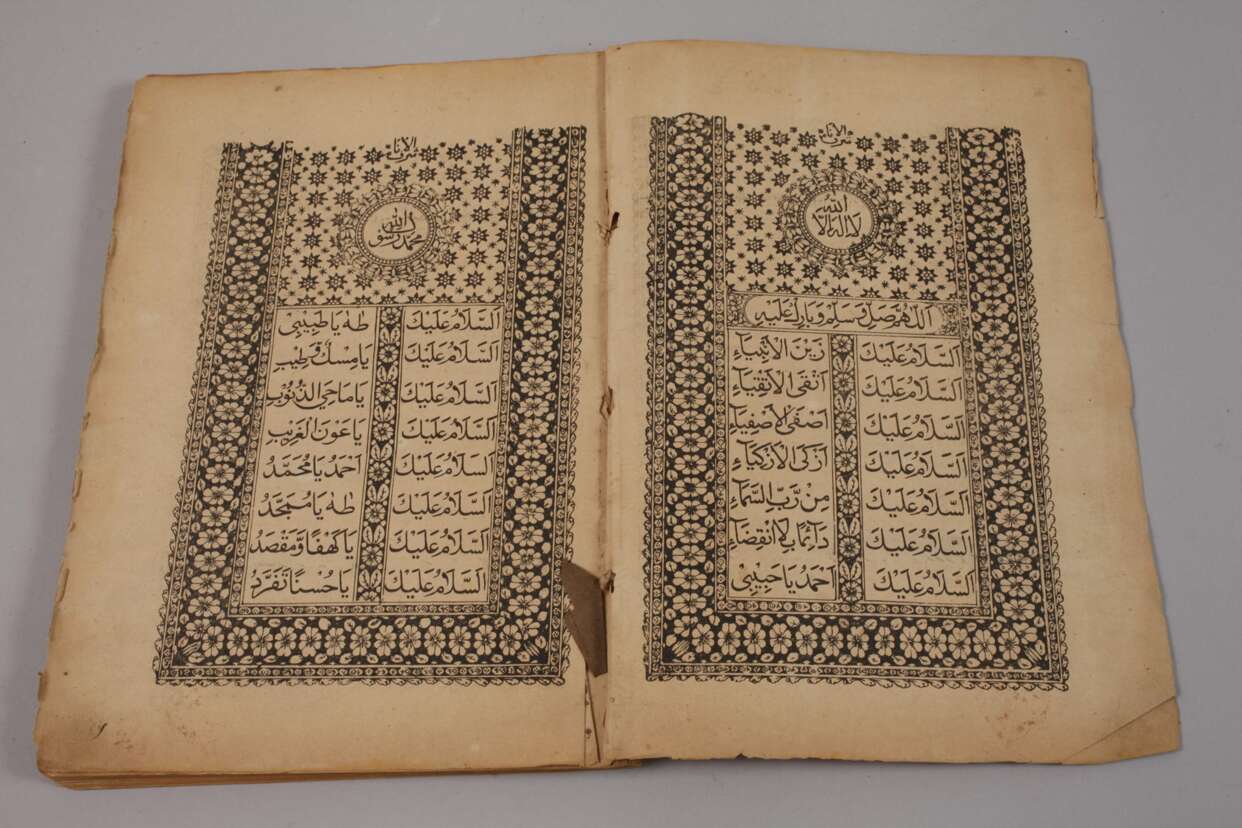 شرف الأنام
لا إله إلا الله
اَللّٰهُمَّ صَلِّ وَسَلِّمْ وَبَارِكْ عَلَيْهِ
اَلسَّلَامُ عَلَيْكَ زَيْنَ الْاَنْبِيَاءِ
اَلسَّلَامُ عَلَيْكَ اَتْقَى الْاَتْقِيَاءِ
اَلسَّلَامُ عَلَيْكَ اَصْفَى الْاَصْفِيَاءِ
اَلسَّلَامُ عَلَيْكَ اَزْكَى الْاَزْكِيَاءِ
اَلسَّلَامُ عَلَيْكَ مِنْ رَبِّ السَّمَاءِ
اَلسَّلَامُ عَلَيْكَ دَائِمًا بِلَا انْقِضَاءِ
اَلسَّلَامُ عَلَيْكَ اَحْمَدُ يَا حَبِيْبِيْ
شرف الأنام
محمد رسول الله
اَلسَّلَامُ عَلَيْكَ طٰهٰ يَا طَبِيْبِيْ
اَلسَّلَامُ عَلَيْكَ يَا مِسْكُ وَطِيْبِ
اَلسَّلَامُ عَلَيْكَ يَا مَاحِيَ الذُّنُوْبِ
اَلسَّلَامُ عَلَيْكَ يَا عَوْنَ الْغَرِيْبِ
اَلسَّلَامُ عَلَيْكَ اَحْمَدُ يَا مُحَمَّدُ
اَلسَّلَامُ عَلَيْكَ طٰهٰ يَا مُمَجَّدُ
اَلسَّلَامُ عَلَيْكَ يَا كَهْفًا وَّمَقْصَدُ
اَلسَّلَامُ عَلَيْكَ يَا حُسْنًا تَفَرَّدَ